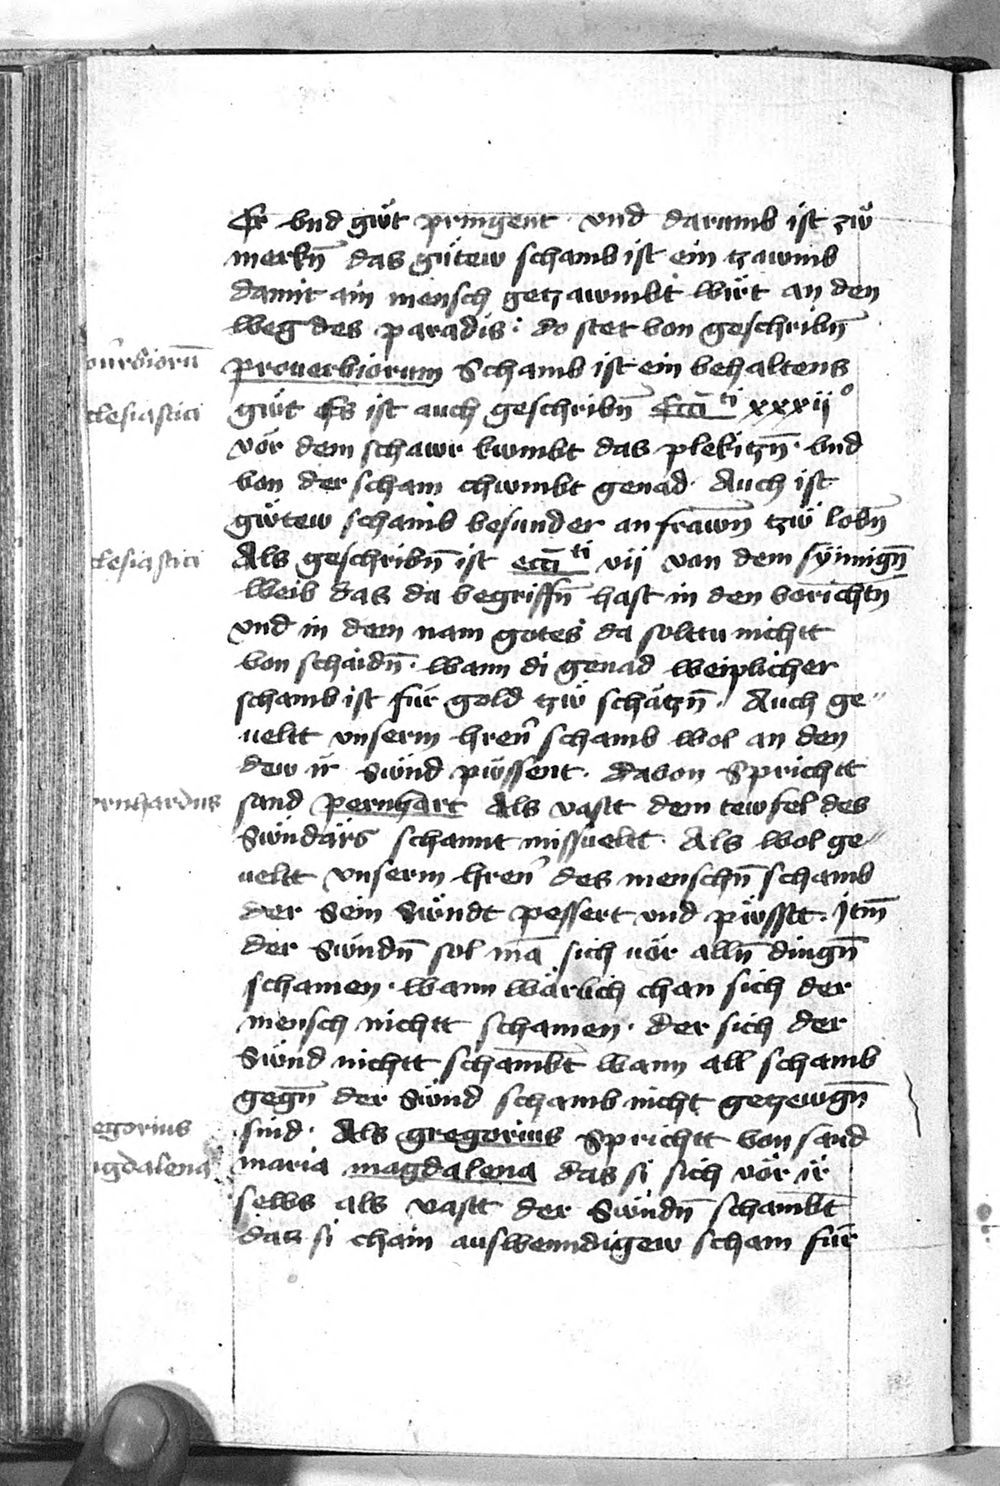 Er vnd gůt pringent · vnd darumb ist zw̄
merkn̄ das gůtew schamb ist ein tzawmb
damit ain mensch getzawmbt wirt an den
weg des paradis · do stet von geschribn̄
prouerbiorum Schamb ist ein behaltens
gůt Es ist auch geschribn̄ Ecc̄i^ti xxxii^o
vör dem schawr kwmbt das plekitzn̄ · vnd
von der scham chwmbt genad · Auch ist
gůtew schamb besunder an frawn̄ tzw̄ lobn̄
Als geschribn̄ ist ecc̄i^ti vii von dem synnign̄
weib das du begriffn̄ hast in den vorichtn
vnd in dem nam gotes da solttu nichtt
von schaidn̄ · wann di genad weiplicher
schamb ist für gold tzw̄ schätzn̄ · Auch ge〃
ueltt vnserm hren̄ schamb wol an den
dew ir Sẅnd pẅssent · dauon Sprichtt
sand pernhart Als vastt dem tewfel des
Sẅndärs schamt missueltt · Als wol ge〃
ueltt vnserm hren̄ des menschn̄ schamb
der Sein Sẅndt pessert vnd pẅsstt · Jtm̄
der Sẅndn̄ sol mā sich uör alln̄ dingn̄
schamen · wann wärlich chan sich der
mensch nichtt schamen · der sich der
Sẅnd nichtt schambt wann all schamb
gegn̄ der Sẅnd schamb nicht getzewgn̄
sind · Als gregorius Sprichtt von sand
maria magdalena das si sich vör ir
selbs als vastt der Sẅndn̄ schambt
das si chain auswenndigew scham für
clesiastici
clesiastici
ernhardus
egorius
agdalena